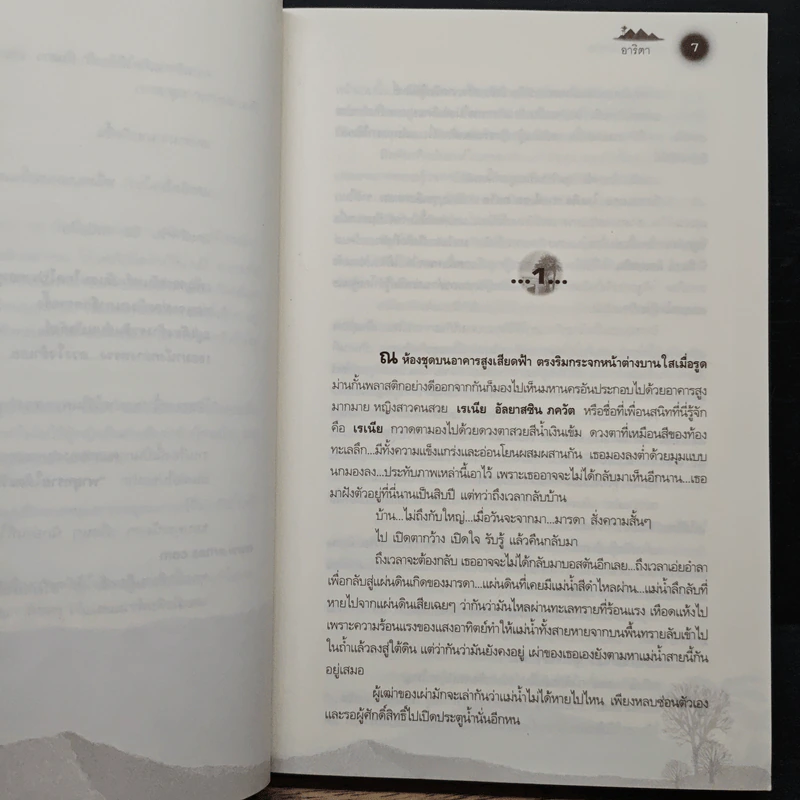 อาริตา
7
...1...
ณ ห้องชุดบนอาคารสูงเสียดฟ้า ตรงริมกระจกหน้าต่างบานใสเมื่อรูด
ม่านกั้นพลาสติกอย่างดีออกจากกันก็มองไปเห็นมหานครอันประกอบไปด้วยอาคารสูง
มากมาย หญิงสาวคนสวย เรเนีย อัลยาสซิน ภควัต หรือชื่อที่เพื่อนสนิทที่นี่รู้จัก
คือ เรเนีย กวาดตามองไปด้วยดวงตาสวยสีน้ำเงินเข้ม ดวงตาที่เหมือนสีของท้อง
ทะเลลึก...มีทั้งความแข็งแกร่งและอ่อนโยนผสมผสานกัน เธอมองลงต่ำด้วยมุมแบบ
นกมองลง...ประทับภาพเหล่านี้เอาไว้ เพราะเธออาจจะไม่ได้กลับมาเห็นอีกนาน...เธอ
มาฝังตัวอยู่ที่นี่นานเป็นสิบปี แต่ทว่าถึงเวลากลับบ้าน
บ้าน...ไม่ถึงกับใหญ่...เมื่อวันจะจากมา...มารดา สั่งความสั้นๆ
ไป เปิดตากว้าง เปิดใจ รับรู้ แล้วคืนกลับมา
ถึงเวลาจะต้องกลับ เธออาจจะไม่ได้กลับมาบอสตันอีกเลย...ถึงเวลาเอ่ยอำลา
เพื่อกลับสู่แผ่นดินเกิดของมารดา...แผ่นดินที่เคยมีแม่น้ำสีดำไหลผ่าน...แม่น้ำลึกลับที่
หายไปจากแผ่นดินเสียเฉยๆ ว่ากันว่ามันไหลผ่านทะเลทรายที่ร้อนแรง เหือดแห้งไป
เพราะความร้อนแรงของแสงอาทิตย์ทำให้แม่น้ำทั้งสายหายจากบนพื้นทรายลับเข้าไป
ในถ้ำแล้วลงสู่ใต้ดิน แต่ว่ากันว่ามันยังคงอยู่ เผ่าของเธอเองยังตามหาแม่น้ำสายนี้กัน
อยู่เสมอ
ผู้เฒ่าของเผ่ามักจะเล่ากันว่าแม่น้ำไม่ได้หายไปไหน เพียงหลบซ่อนตัวเอง
และรอผู้ศักดิ์สิทธิ์ไปเปิดประตูน้ำนั่นอีกหน